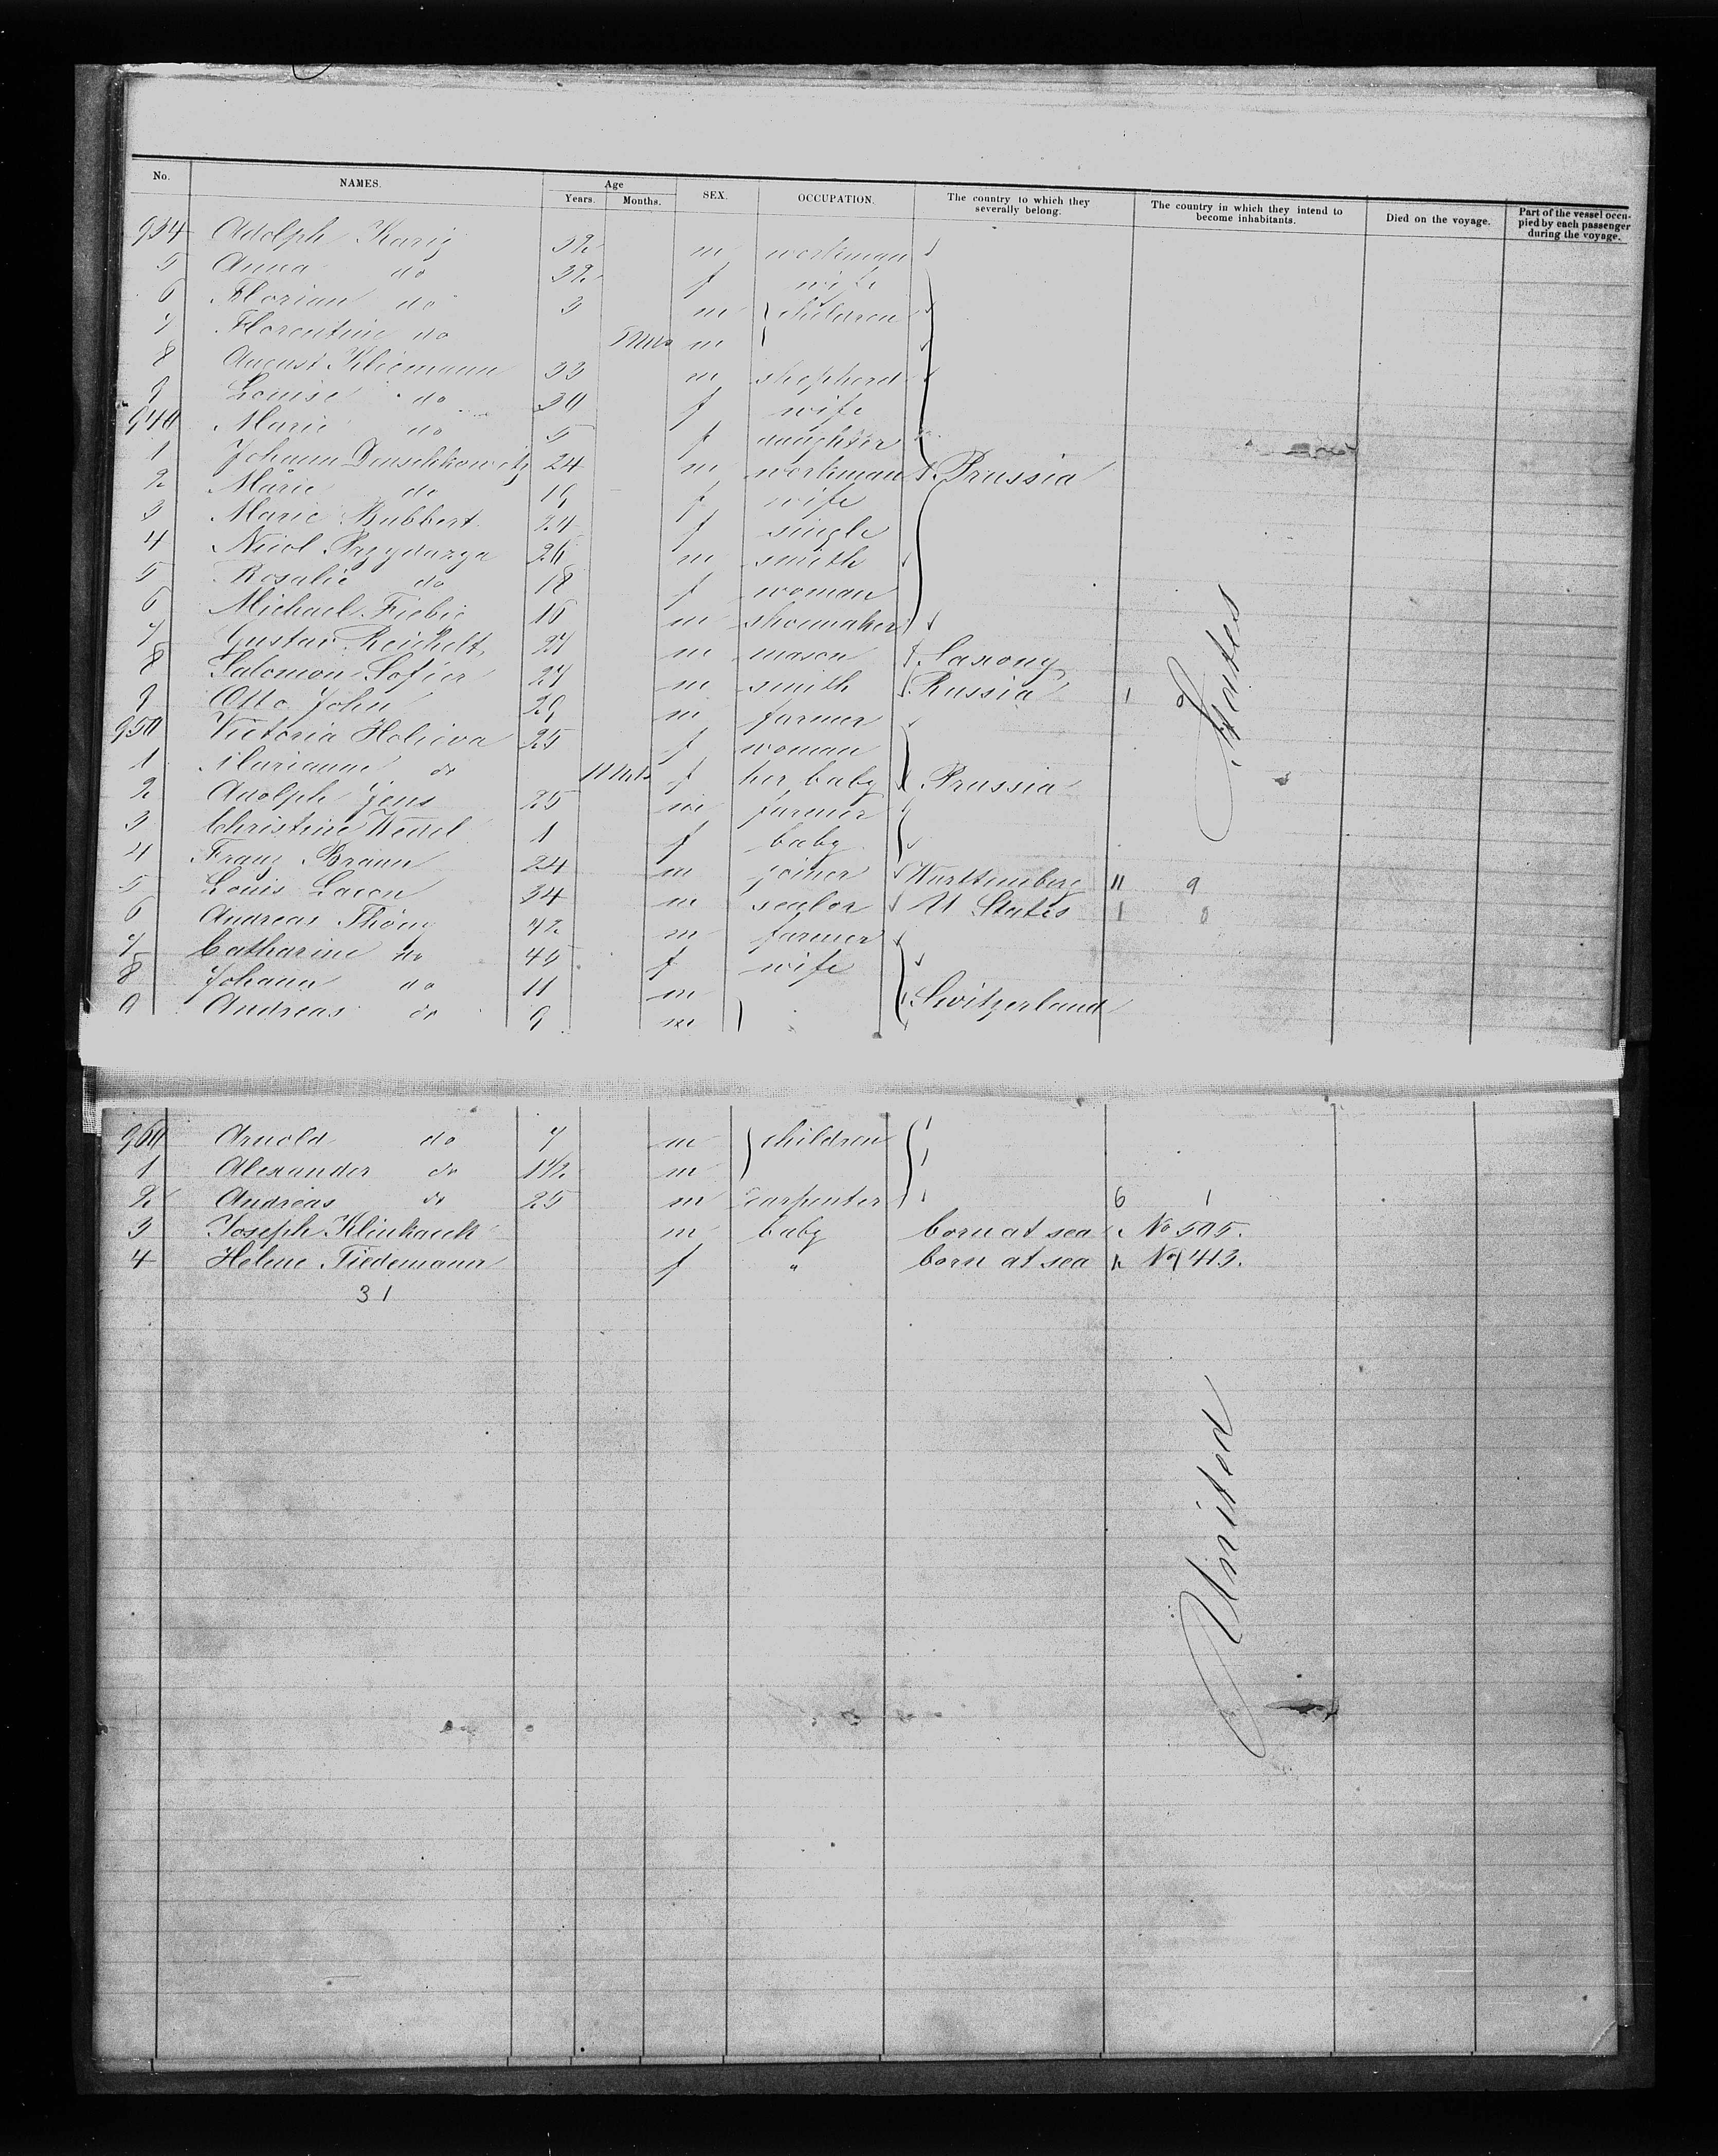 No. NAMES. Age Years. Months. SEX. OCCUPATION. The country to which they severally belong. The country in which they intend to become inhabitants. Died on the voyage. Part of the vessel occupied by each passenger during the voyage.
934 Adolph Karig 32 m workman
5 Anna do 32 f wife
6 Florian do 3 m children
7 Florentine do m
8 August Kliemann 33 m shepherd
9 Louise do 30 f wife
940 Marie do 5 f daughter
1 Johann 24 m workman Prussia
2 Marie do 19 f wife
3 Marie Bubbert 24 f single
4 26 m smith
5 Rosalie do 18 f woman
6 Michael Fiebig m shoemaker
7 Gustav Reichelt 27 m mason Saxony
8 Salomon 27 m smith Russia 1
9 Otto John 29 m farmer
950 Victoria 25 f woman
1 Marianne do f her baby Prussia
2 Adolph Jens 25 m farmer
3 Christine Wedel 1 f baby
4 Franz Braun 24 m joiner Württemberg 11 9
5 Louis Lacon 34 m sealor U States 1
6 Andreas Thöny 42 m farmer
7 Catharine do f wife
8 Johann do 11 m Switzerland
9 Andreas do 9 m
960 Arnold do 7 m children
1 Alexander do 1 1/2 m
2 Andreas do 25 m carpenter 6 1
3 Joseph Klinkach m baby born at sea No 505.
4 Helene Tiedemann f " born at sea No 413.
31
United States